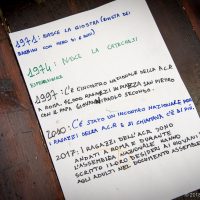 1971: NASCE LA GIOSTRA (RIVISTA DEI
BAMBINI CON MENO DI 6 ANNI)
1974: NASCE LA CATECHESI
ESPERIENZIALE
1997: C'È L'INCONTRO NAZIONALE DELL'A.C.R
A ROMA. 85.000 RAGAZZI IN PIAZZA SAN PIETRO
CON IL PAPA GIOVANNI PAOLO SECONDO.
2010: C'È STATO UN INCONTRO NAZIONALE
I RAGAZZI DELLA A.C.R E SI CHIAMAVA C'È DI PIÙ.
2017: I RAGAZZI DELL'ACR SONO
ANDATI A ROMA E DURANTE
L'ASSEMBLEA NAZIONALE HANNO
SCRITTO I LORO DESIDERI AI GIOVANI
AGLI ADULTI NEL DOCUMENTO ASSEMBLEARE